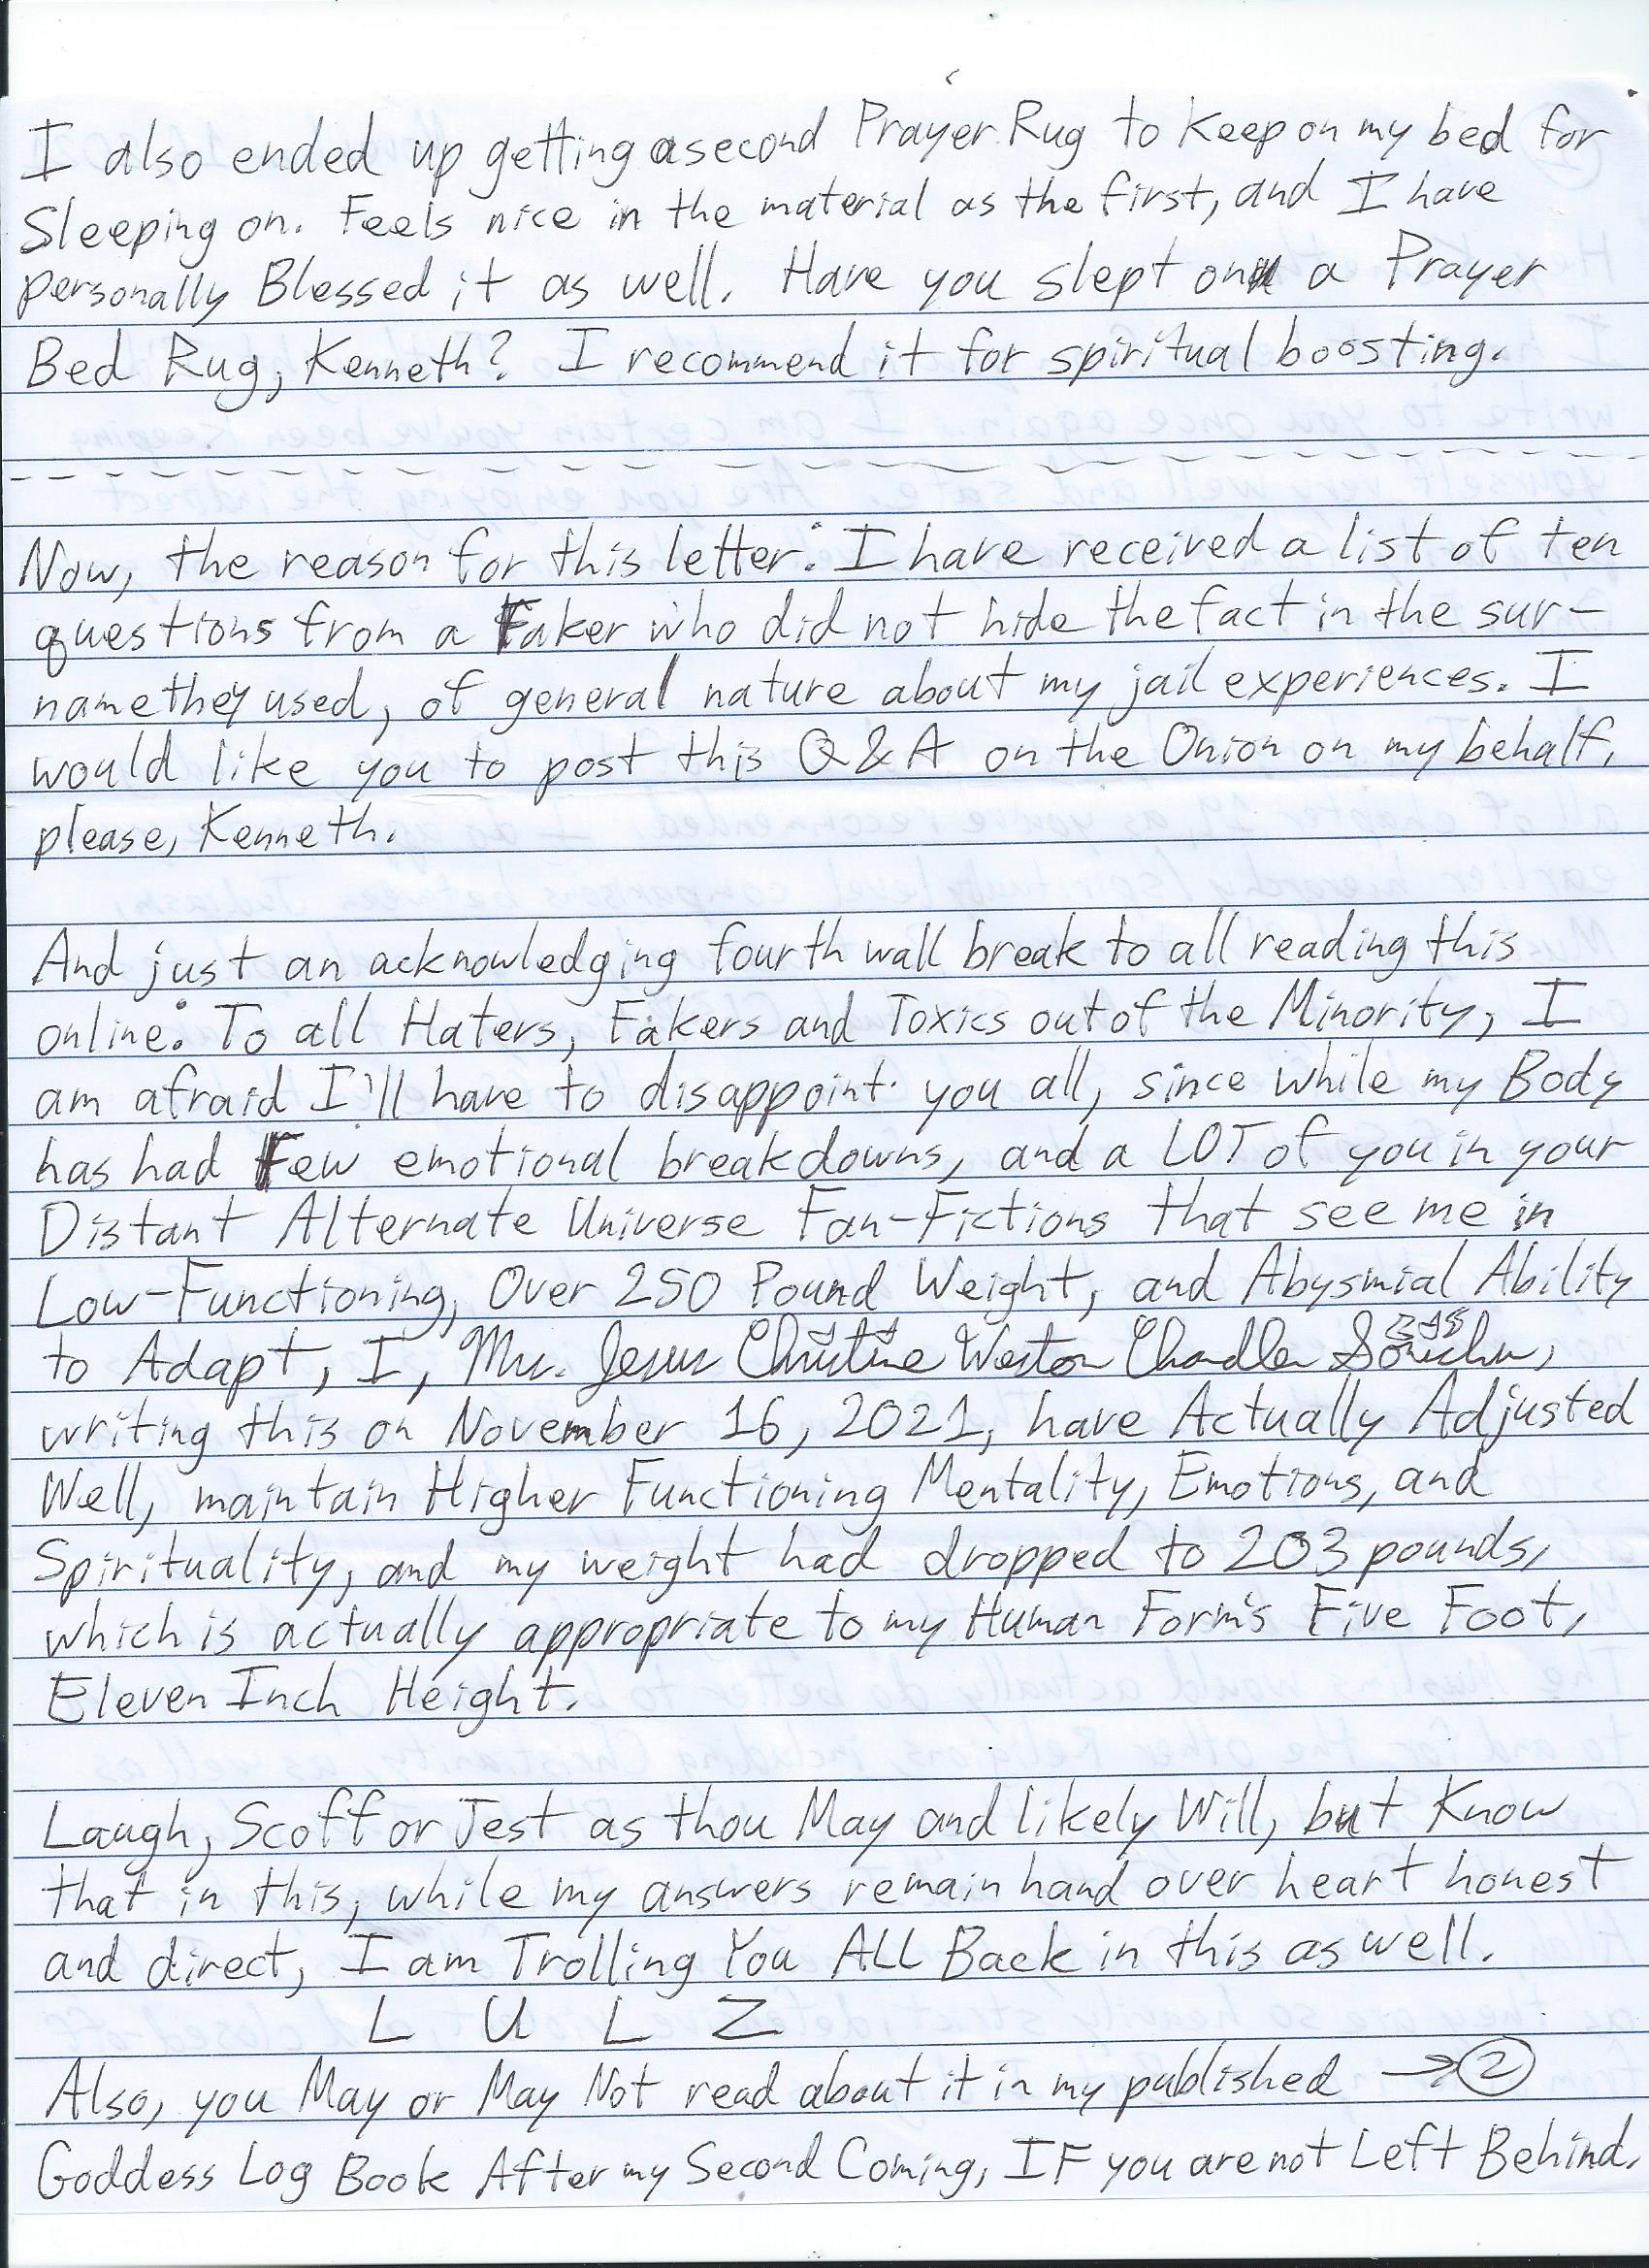 I also ended up getting a second Prayer Rug to keep on my bed for
Sleeping on. Feels nice in the material as the first, and I have
personally Blessed it as well. Have you slept on a Prayer
Bed Rug, Kenneth? I recommend it for spiritual boosting.
Now, the reason for this letter: I have received a list of ten
questions from a Faker who did not hide the fact in the sur-
name they used, of general nature about my jail experiences. I
would like you to post this Q&A on the Onion on my behalf,
please, Kenneth.
And just an acknowledging fourth wall break to all reading this
online: To all Haters, Fakers and Toxics out of the Minority, I
am afraid I'll have to disappoint you all, since while my Body
has had Few emotional breakdowns, and a LOT of you in your
Distant Alternate Universe Fan-Fictions that see me in
Low-Functioning, Over 250 Pound Weight, and Abysmial Ability
to Adapt, I, Mrs. Jesus Christine Weston Chandler Sonichu,
writing this on November 16, 2021, have Actually Adjusted
Well, maintain Higher Functioning Mentality, Emotions, and
Spirituality, and my weight had dropped to 203 pounds,
which is actually appropriate to my Human Form's Five Foot,
Eleven Inch Height.
Laugh, Scoff or Jest as thou May and likely Will, but Know
that in this, while my answers remain hand over heart honest
and direct, I am Trolling You ALL Back in this as well.
L U L Z
Also, you May or May Not read about it in my published → 2
Goddess Log Book After my Second Coming, IF you are not Left Behind.